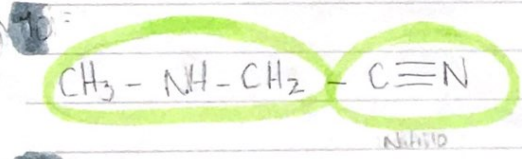 10=
CH₃ - NH - CH₂ - C≡N
Nitrilo